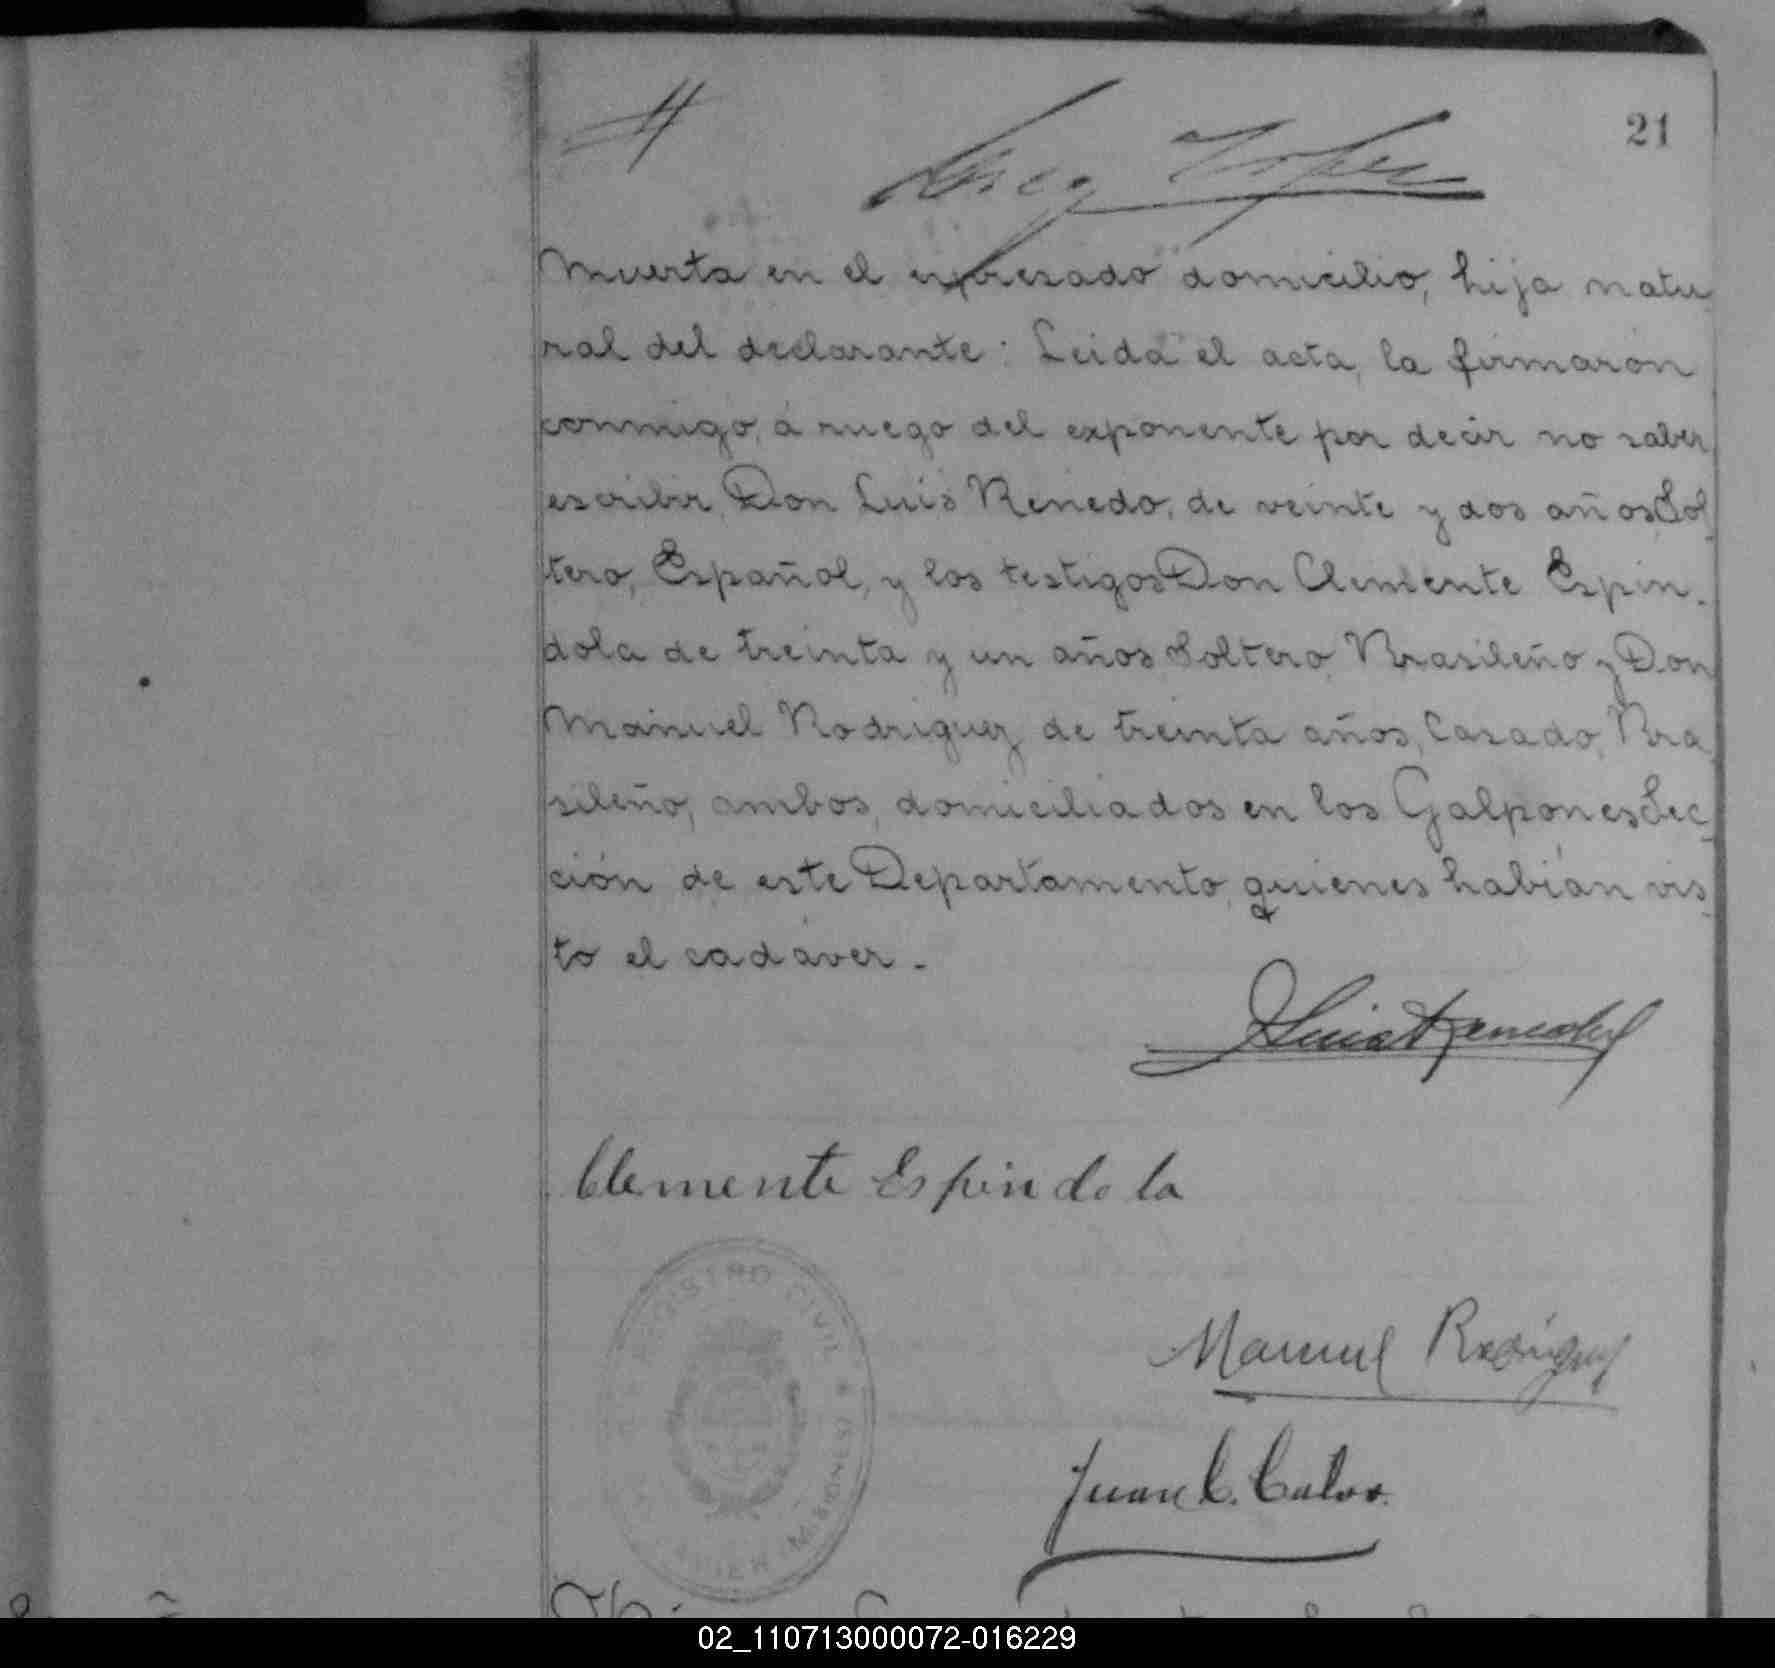 21
Muerta en el expresado domicilio, hija natu
ral del declarante: Leida el acta, la firmaron
conmigo, á ruego del exponente por decir no saber
escribir, Don Luis Renedo, de veinte y dos años, Sol_
tero, Español, y los testigos Don Clemente Espin_
dola de treinta y un años Soltero, Brasileño y Don
Manuel Rodriguez de treinta años, Casado, Bra_
sileño, ambos, domiciliados en los Galpones Sec_
ción de este Departamento, quienes habían vis_
to el cadáver.
Luis Renedo
Clemente Espindola
REGISTRO CIVIL
JAVIER (MISIONES)
Manuel Rodriguez
Juan C. Calvo.
02_110713000072-016229